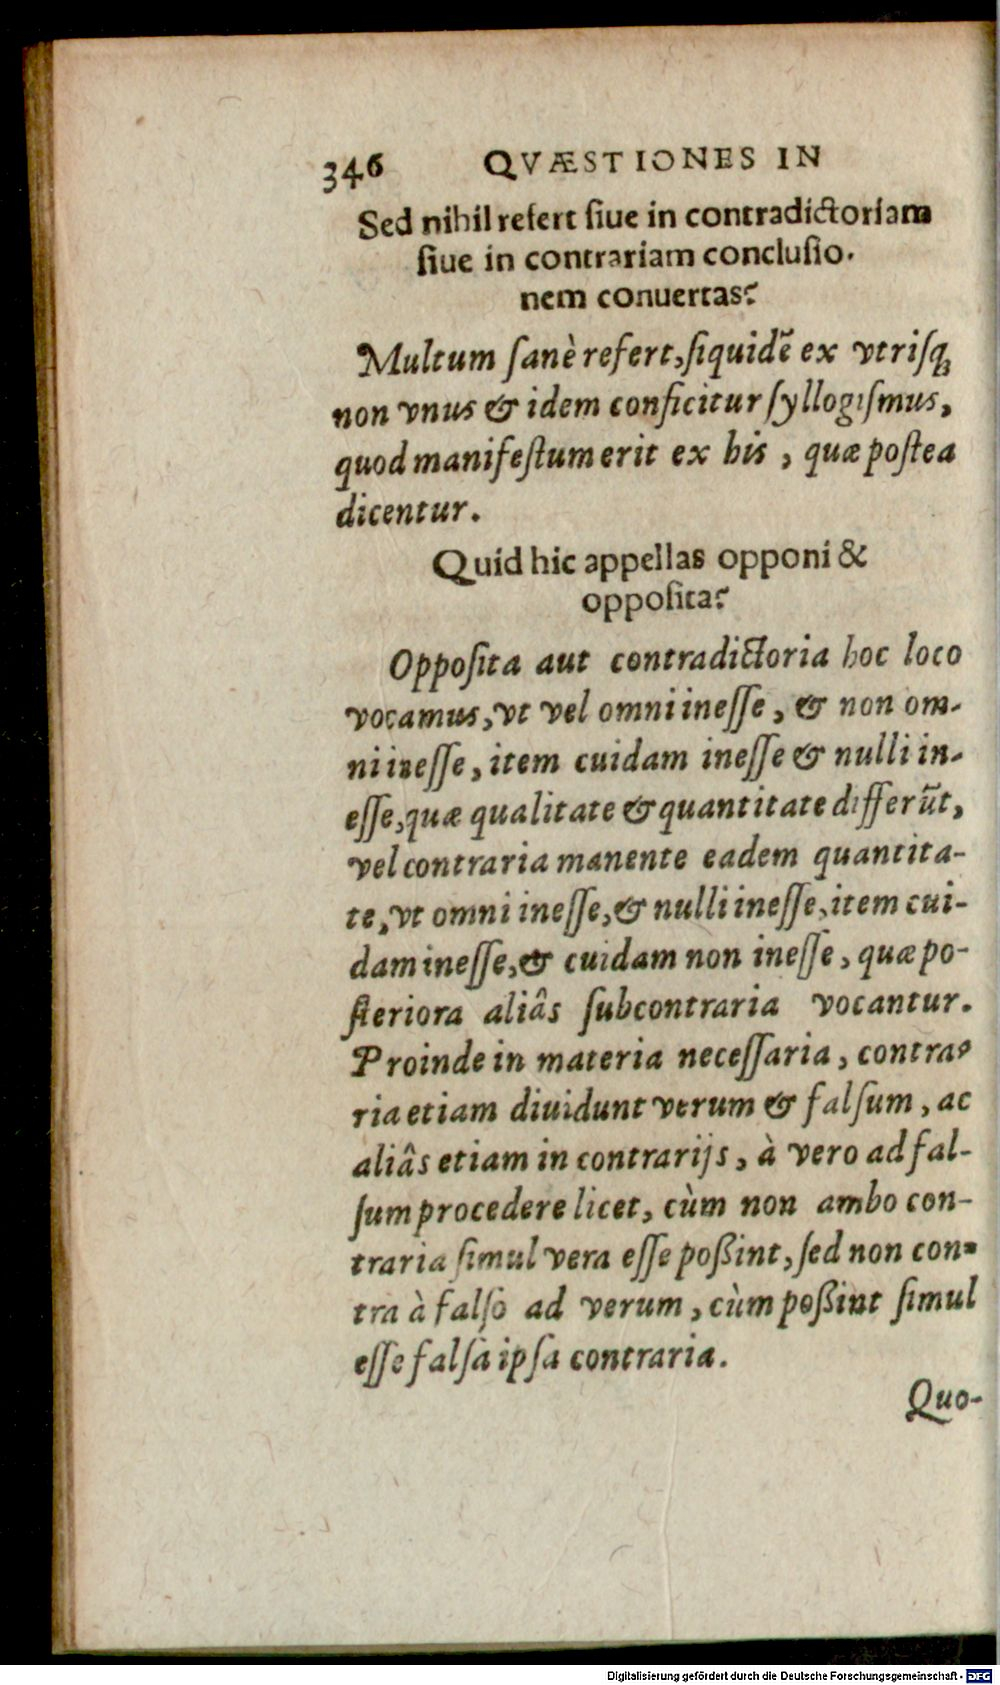 346 QVÆSTIONES IN
Sed nihil refert ſiue in contradictoriam
ſiue in contrariam concluſio-
nem conuertas?
Multum ſanè refert, ſiquidẽ ex vtriſq;
non vnus & idem conficitur ſyllogiſmus,
quod manifeſtum erit ex his, quæ poſtea
dicentur.
Quid hic appellas opponi &
oppoſita?
Oppoſita aut contradictoria hoc loco
vocamus, vt vel omni ineſſe, & non om-
ni ineſſe, item cuidam ineſſe & nulli in-
eſſe, quæ qualitate & quantitate differũt,
vel contraria manente eadem quantita-
te, vt omni ineſſe, & nulli ineſſe, item cui-
dam ineſſe, & cuidam non ineſſe, quæ po-
ſteriora aliâs ſubcontraria vocantur.
Proinde in materia neceſſaria, contra-
ria etiam diuidunt verum & falſum, ac
aliâs etiam in contrarijs, à vero ad fal-
ſum procedere licet, cùm non ambo con-
traria ſimul vera eſſe poßint, ſed non con-
tra à falſo ad verum, cùm poßint ſimul
eſſe falſa ipſa contraria.
Quo-
Digitalisierung gefördert durch die Deutsche Forschungsgemeinschaft - DFG